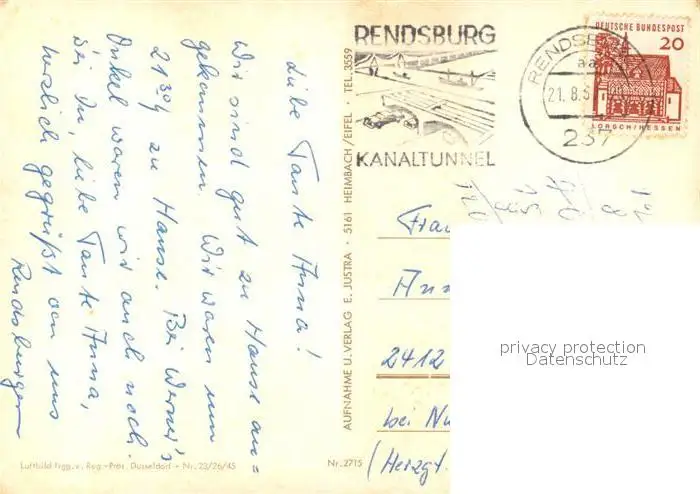 Liebe Tante Anna!
Wir sind gut zu Hause an=
gekommen. Wir waren um
21 30 zu Hause. Bei Werner's
Onkel waren wir auch noch.
Sei Du, liebe Tante Anna,
herzlich gegrüßt von uns
Rendsburgern
Luftbild Frgg. v. Reg.-Präs. Düsseldorf • Nr. 23/26/45
Nr. 2715
AUFNAHME U. VERLAG E. JUSTRA · 5161 HEIMBACH/EIFEL · TEL. 3559
RENDSBURG
KANALTUNNEL
RENDSBURG
aa
21. 8. 
237
DEUTSCHE BUNDESPOST
20
LORSCH/HESSEN
Frau
Ann
2412
bei Nu
(Herzgt.
privacy protection
Datenschutz